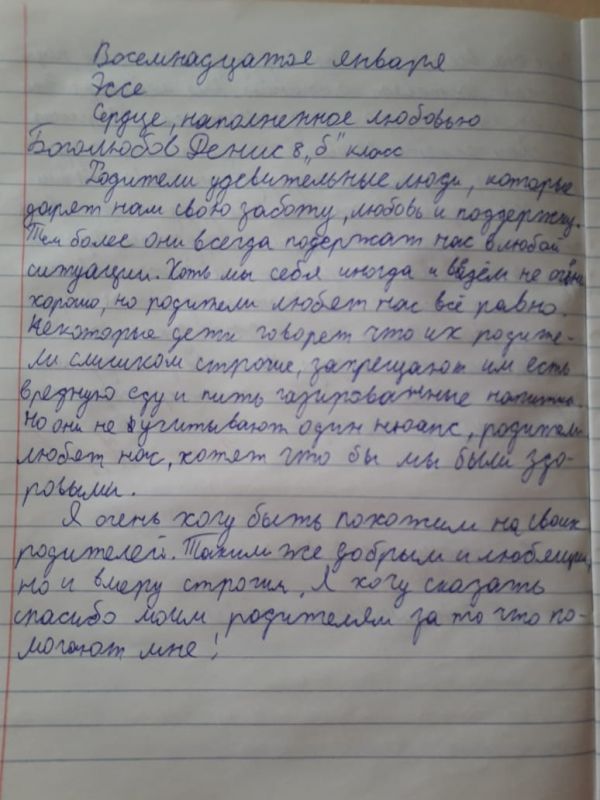 Восемнадцатое января
Эссе
Сердце, наполненное любовью
Боголюбов Денис 8 „б" класс
Родители удевительные люди, которые
дарят нам свою заботу, любовь и поддержку.
Тем более они всегда подержат нас в любой
ситуации. Хоть мы себя иногда и ведём не очень
хорошо, но родители любят нас всё равно.
Некоторые дети говорет что их родите-
ли слишком строгие, запрещают им есть
вредную еду и пить газированные напитки.
Но они не учитывают один нюанс, родители
любят нас, хотят что бы мы были здо-
ровыми.
Я очень хочу быть похожим на своих
родителей. Таким же добрым и любящим,
но и вмеру строгим. Я хочу сказать
спасибо моим родителям за то что по-
могают мне!